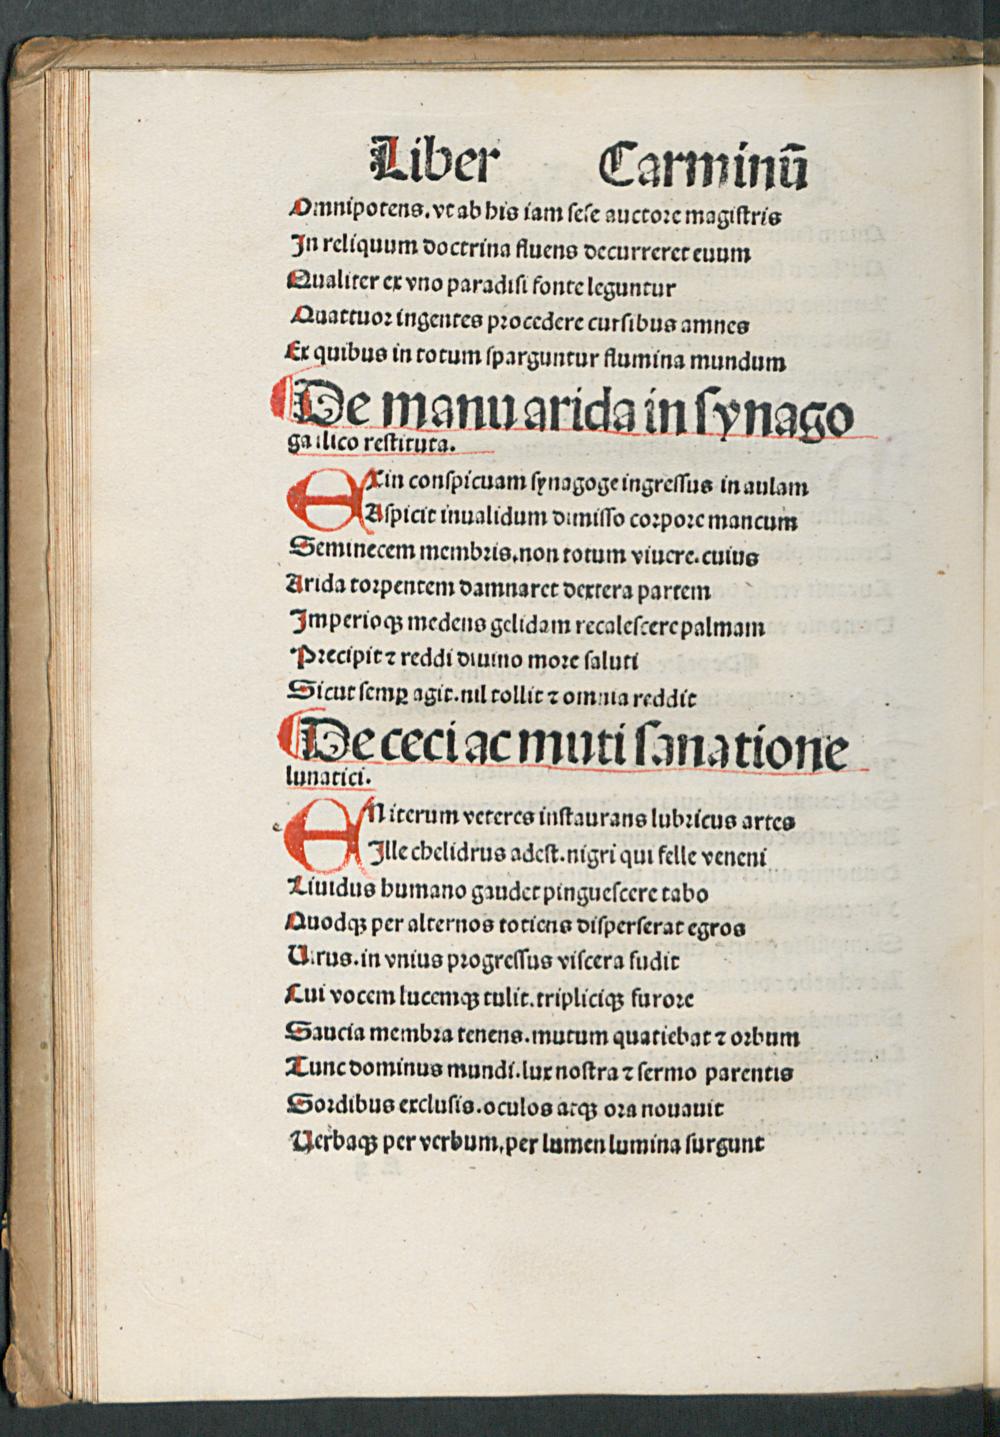 Liber Carminū
Omnipotens. vt ab his iam sese auctore magistris
In reliquum doctrina fluens decurreret euum
Qualiter ex vno paradisi fonte leguntur
Quattuor ingentes procedere cursibus amnes
Ex quibus in totum sparguntur flumina mundum
De manu arida in synago
ga ilico restituta.
Exin conspicuam synagoge ingressus in aulam
Aspicit inualidum dimisso corpore mancum
Seminecem membris, non totum viuere. cuius
Arida torpentem damnaret dextera partem
Imperioqꝫ medens gelidam recalescere palmam
Precipit ⁊ reddi diuino more saluti
Sicut semꝑ agit. nil tollit ⁊ omnia reddit
De ceci ac muti sanatione
lunatici.
EN iterum veteres instaurans lubricus artes
Ille chelidrus adest. nigri qui felle veneni
Liuidus humano gaudet pinguescere tabo
Quodqꝫ per alternos totiens disperserat egros
Uirus. in vnius progressus viscera fudit
Cui vocem lucemqꝫ tulit. tripliciqꝫ furore
Saucia membra tenens. mutum quatiebat ⁊ orbum
Tunc dominus mundi. lux nostra ⁊ sermo parentis
Sordibus exclusis. oculos atqꝫ ora nouauit
Uerbaqꝫ per verbum, per lumen lumina surgunt